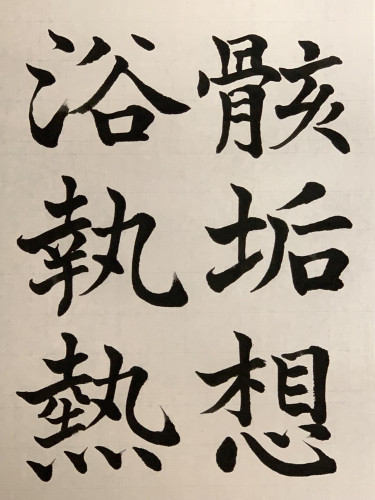 骸垢想
浴執熱